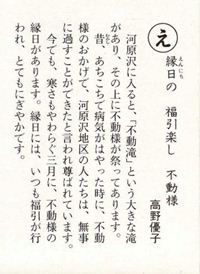 え
えんにち
縁日の　福引楽し　不動様
高野優子
河原沢に入ると、「不動滝」という大きな滝
があり、その上に不動様が祭ってあります。
昔、あちこちで病気がはやった時に、不動
様のおかげで、河原沢地区の人たちは、無事
に過すことができたと言われ尊ばれています。
今でも、寒さもやわらぐ三月に、不動様の
縁日があります。縁日には、いつも福引が行
われ、とてもにぎやかです。